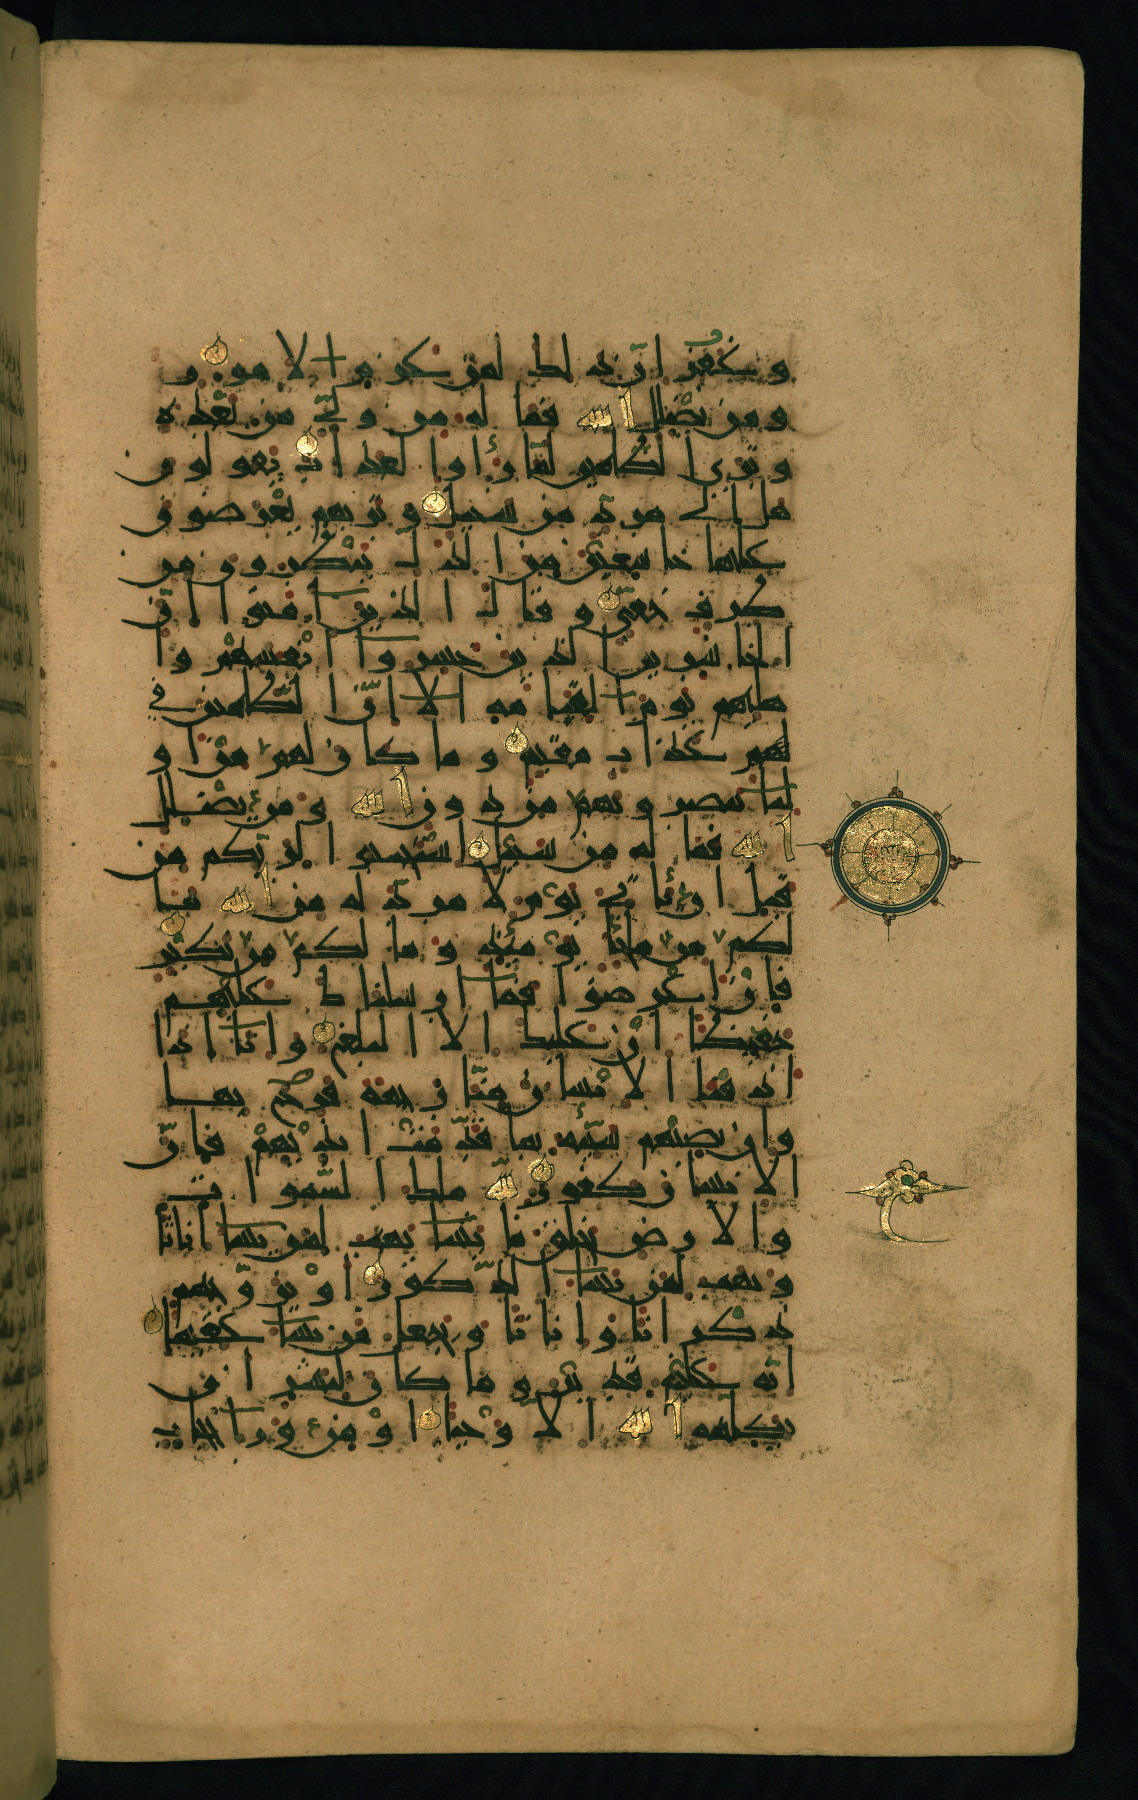 وغفر ان ذلك لمن عزم الامور
ومن يضلل الله فما له من ولي من بعده
وترى الظلمين لما راوا العذاب يقولون
هل الى مرد من سبيل وتريهم يعرضون
عليها خاشعين من الذل ينظرون من
طرف خفي وقال الذين امنوا ان
الخاسرين الذين خسروا انفسهم وا
هليهم يوم القيمة الا ان الظلمين في
لهم عذاب مقيم وما كان لهم من او
ليا ينصرونهم من دون الله ومن يضلل
الله فما له من سبيل استجيبوا لربكم من
قبل ان ياتي يوم لا مرد له من الله ما
لكم من ملجا يومئذ وما لكم من نكير
فان اعرضوا فما ارسلناك عليهم
حفيظا ان عليك الا البلغ وانا اذا
اذقنا الانسان منا رحمة فرح بها
وان تصبهم سيئة بما قدمت ايديهم فان
الانسان كفور لله ملك السموات
والارض يخلق ما يشا يهب لمن يشا اناثا
ويهب لمن يشا الذكور او يزوجهم
ذكرانا واناثا ويجعل من يشا عقيما
انه عليم قدير وما كان لبشر ان
يكلمه الله الا وحيا او من وراي حجاب